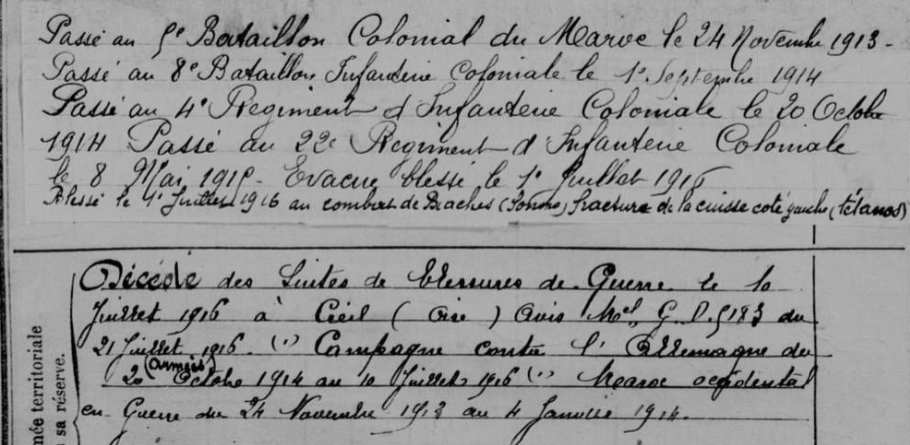 Passé au 5e Bataillon Colonial du Maroc le 24 Novembre 1913.
Passé au 8e Bataillon Infanterie Coloniale le 1er Septembre 1914
Passé au 4e Regiment d'Infanterie Coloniale le 20 Octobre
1914 Passé au 22e Regiment d'Infanterie Coloniale
le 8 Mai 1915. Evacué blessé le 1er Juillet 1916
Blessé le 1er Juillet 1916 au combat de Biaches (Somme) fracture de la cuisse coté gauche (tétanos)
Décédé des suites de blessures de Guerre le 10
Juillet 1916 à Creil (Oise) Avis Mel G.D. 5183 du
21 Juillet 1916. (1) Campagne contre l'Allemagne du
(Armées)
20 Octobre 1914 au 10 Juillet 1916 (1) Maroc occidental
en Guerre du 24 Novembre 1913 au 4 Janvier 1914.
mée territoriale
sa réserve.